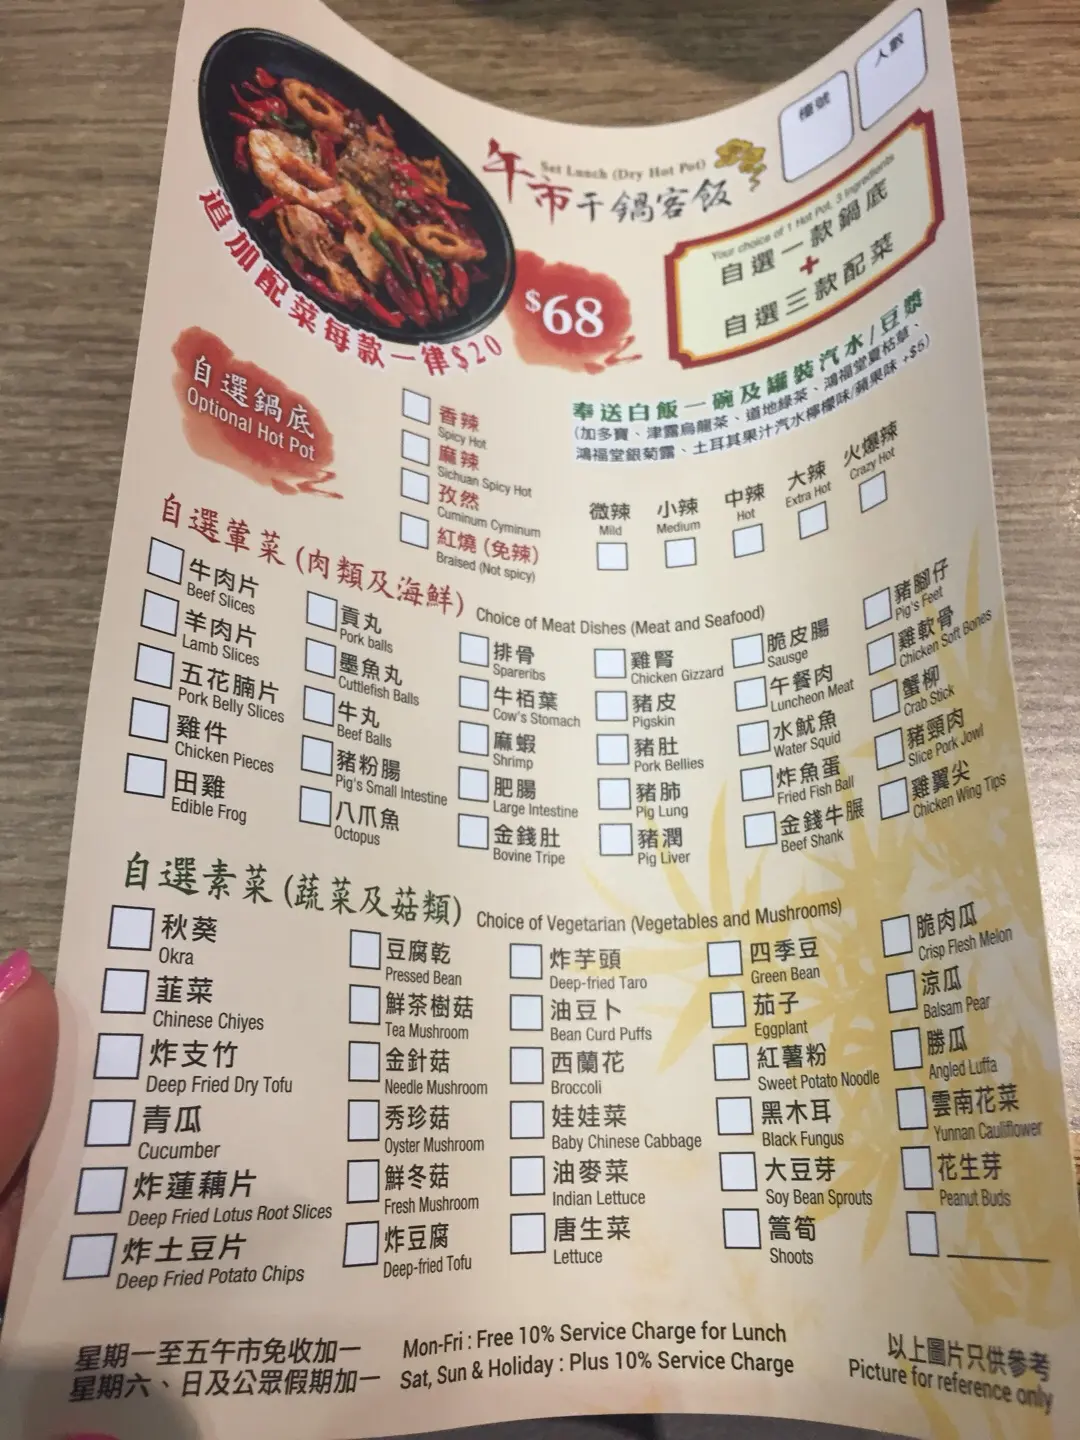 檯號
人數
Set Lunch (Dry Hot Pot)
午市干鍋客飯
$68
Your choice of 1 Hot Pot, 3 Ingredients
自選一款鍋底
+
自選三款配菜
追加配菜每款一律$20
奉送白飯一碗及罐裝汽水/豆漿
(加多寶、津露烏龍茶、道地綠茶、鴻福堂夏枯草、
鴻福堂銀菊露、土耳其果汁汽水檸檬味/蘋果味 +$5)
自選鍋底
Optional Hot Pot
香辣
Spicy Hot
麻辣
Sichuan Spicy Hot
孜然
Cuminum Cyminum
紅燒 (免辣)
Braised (Not spicy)
微辣
Mild
小辣
Medium
中辣
Hot
大辣
Extra Hot
火爆辣
Crazy Hot
自選葷菜 (肉類及海鮮) Choice of Meat Dishes (Meat and Seafood)
牛肉片
Beef Slices
羊肉片
Lamb Slices
五花腩片
Pork Belly Slices
雞件
Chicken Pieces
田雞
Edible Frog
貢丸
Pork balls
墨魚丸
Cuttlefish Balls
牛丸
Beef Balls
豬粉腸
Pig's Small Intestine
八爪魚
Octopus
排骨
Spareribs
牛栢葉
Cow's Stomach
麻蝦
Shrimp
肥腸
Large Intestine
金錢肚
Bovine Tripe
雞腎
Chicken Gizzard
豬皮
Pigskin
豬肚
Pork Bellies
豬肺
Pig Lung
豬潤
Pig Liver
脆皮腸
Sausge
午餐肉
Luncheon Meat
水魷魚
Water Squid
炸魚蛋
Fried Fish Ball
金錢牛𦟌
Beef Shank
豬腳仔
Pig's Feet
雞軟骨
Chicken Soft Bones
蟹柳
Crab Stick
豬頸肉
Slice Pork Jowl
雞翼尖
Chicken Wing Tips
自選素菜 (蔬菜及菇類) Choice of Vegetarian (Vegetables and Mushrooms)
秋葵
Okra
韮菜
Chinese Chiyes
炸支竹
Deep Fried Dry Tofu
青瓜
Cucumber
炸蓮藕片
Deep Fried Lotus Root Slices
炸土豆片
Deep Fried Potato Chips
豆腐乾
Pressed Bean
鮮茶樹菇
Tea Mushroom
金針菇
Needle Mushroom
秀珍菇
Oyster Mushroom
鮮冬菇
Fresh Mushroom
炸豆腐
Deep-fried Tofu
炸芋頭
Deep-fried Taro
油豆卜
Bean Curd Puffs
西蘭花
Broccoli
娃娃菜
Baby Chinese Cabbage
油麥菜
Indian Lettuce
唐生菜
Lettuce
四季豆
Green Bean
茄子
Eggplant
紅薯粉
Sweet Potato Noodle
黑木耳
Black Fungus
大豆芽
Soy Bean Sprouts
篙筍
Shoots
脆肉瓜
Crisp Flesh Melon
涼瓜
Balsam Pear
勝瓜
Angled Luffa
雲南花菜
Yunnan Cauliflower
花生芽
Peanut Buds
星期一至五午市免收加一
星期六、日及公眾假期加一
Mon-Fri : Free 10% Service Charge for Lunch
Sat, Sun & Holiday : Plus 10% Service Charge
以上圖片只供參考
Picture for reference only